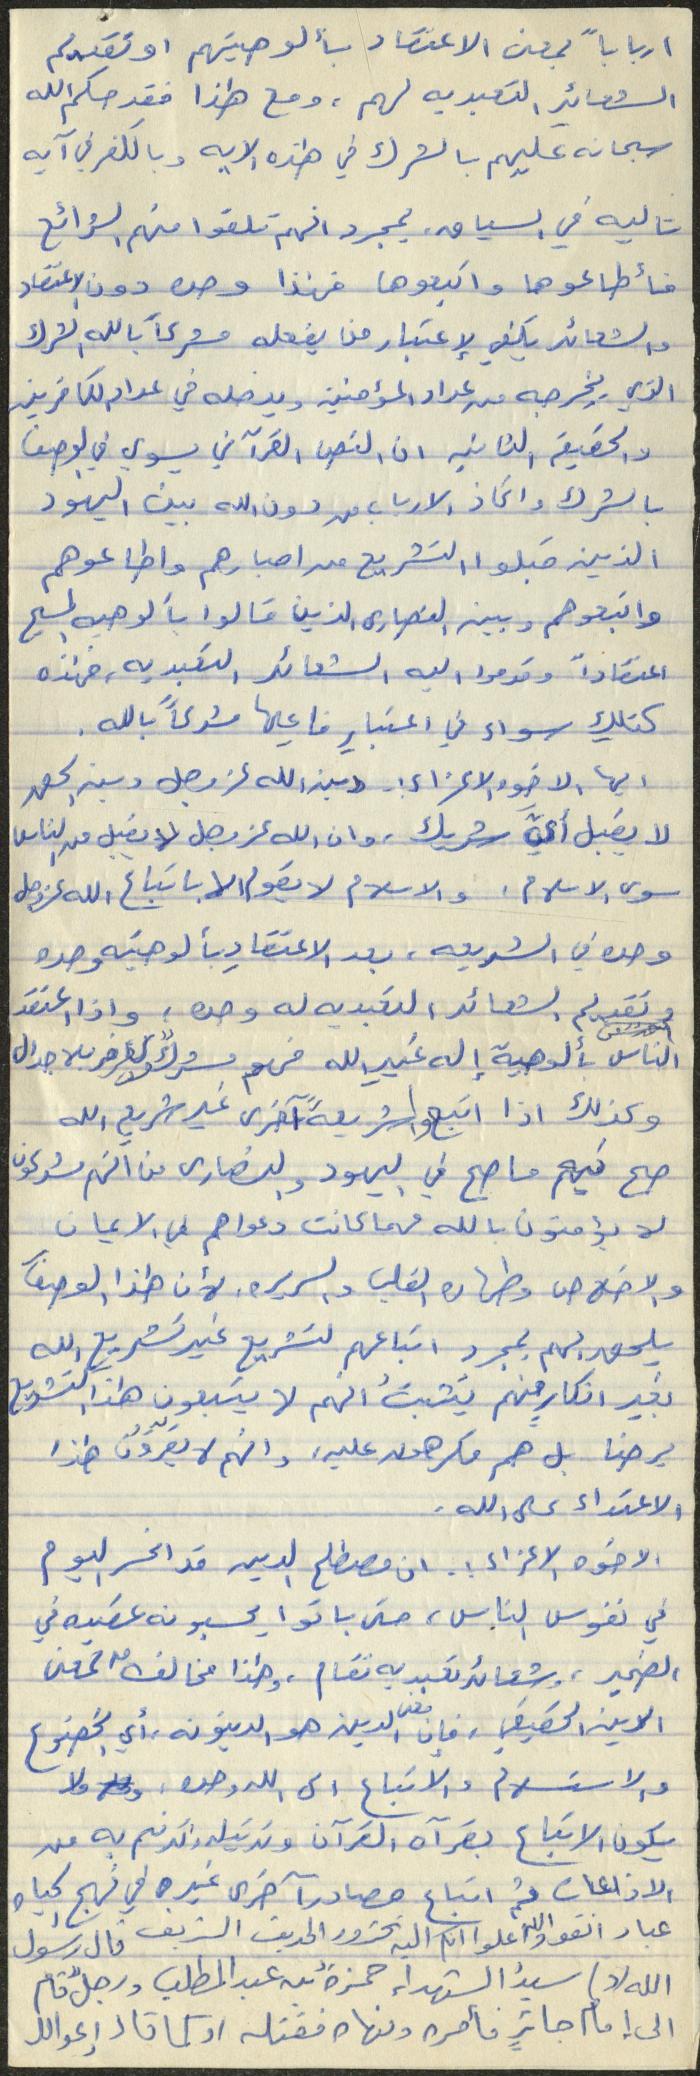 ارباباً بمعنى الاعتقاد بألوهيتهم او تقديم
الشعائر التعبديه لهم ، ومع هذا فقد حكم الله
سبحانه عليهم بالشرك في هذه الايه وبالكفر في آيه
تاليه في السياق، لمجرد انهم تلقوا منهم الشرائع
فأطاعوها واتبعوها فهذا وحده دون الاعتقاد
والشعائر يكفي لإعتبار من يفعله مشركاً بالله الشرك
الذي يخرجه من عداد المؤمنين ويدخله في عداد الكافرين
والحقيقه الثانيه ان النص القرآني يسوي في الوصف
بالشرك واتخاذ الارباب من دون الله بين اليهود
الذين قبلوا التشريع من احبارهم واطاعوهم
واتبعوهم وبين النصارى الذين قالوا بألوهيه المسيح
اعتقاداً وقدموا اليه الشعائر التعبديه ، فهذه
كتلك سواء في اعتبار فاعليها مشركاً بالله .
ايها الاخوه الاعزاء ! دين الله عز وجل ودين الحق
لا يقبل أيّ شريك ، وان الله عز وجل لا يقبل من الناس
سوى الاسلام ، والاسلام لا يقوم الا باتباع الله عز وجل
وحده في الشريعه ، بعد الاعتقاد بألوهيته وحده
وتقديم الشعائر التعبديه له وحده ؛ واذا اعتقد
الناس بألوهية إله غير الله فهو مشرك وكافر بلا جدال
وكذلك اذا اتبعوا شريعةً آخرى غير شريعه الله
صح فيهم ما صح في اليهود والنصارى من انهم مشركون
لا يؤمنون بالله مهما كانت دعواهم في الايمان
والاخلاص وطهاره القلب والسريره ، لأن هذا الوصف
يلحق بهم بمجرد اتباعهم لتشريع غير تشريع الله
بغير انكارٍ منهم يثبتُ انهم لا يتبعون هذا التشريع
برضا بل هم مكرهون عليه ، وانهم لا يقرّون هذا
الاعتداء على الله .
الاخوه الاعزاء ! . ان مصطلح الدين قد انحسر اليوم
في نفوس الناس ، حتى باتوا يحسبونه عقيده في
الضمير ، وشعائر تعبديه تقام ، وهذا مخالف لمعنى
الدين الحقيقي ، فإن معنى الدين هو الدينونه ، أي الخضوع
والاستسلام والاتباع الى الله وحده ، ولا
يكون الاتباع بقرآه القرآن وترتيله والترنم به من
الاذاعات ثم اتباع مصادر آخرى غيره في نهج الحياه
عباد اتقوا الله واعلموا انكم اليه تحشرون الحديث الشريف قال رسول
الله (ص) سيدُ الشهداء حمزةُ بن عبد المطلب ورجلٌ قام
الى إمام جائرٍ فأمره ونهاه فقتله او كما قال ادعوا الله